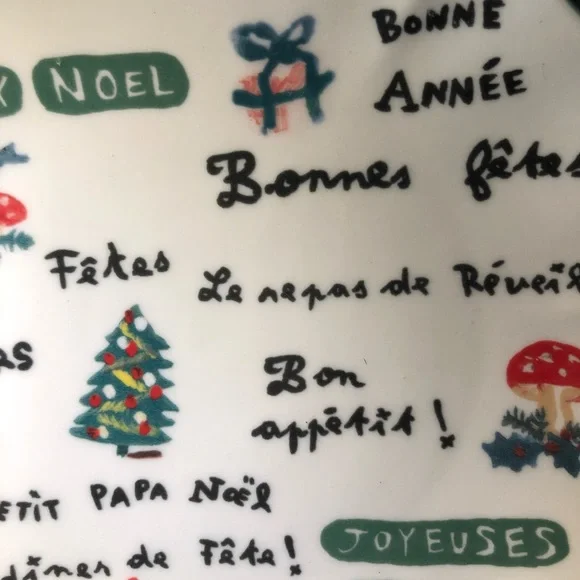 BONNE
ANNÉE
X NOEL
Bonnes fêtes
Fêtes
Le repas de Réveil
as
Bon
appétit !
ETIT PAPA Noël
dîner de Fête !
JOYEUSES